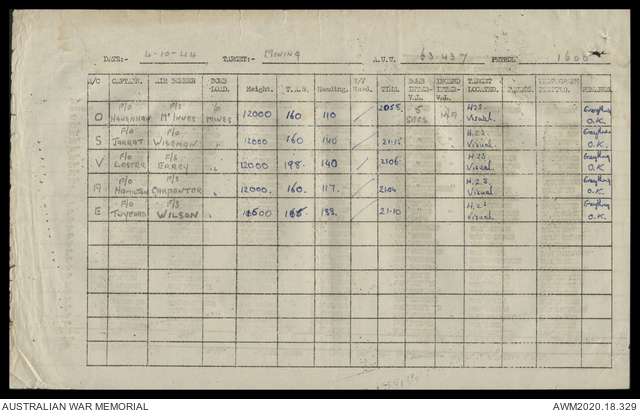 DATE:- 4-10-44 TARGET:- MINING A.U.W. 63.437 PETROL 1600
A/C CAPTAIN. AIR BOMBER BOMB LOAD. Height. T.A.S. Heading. W/V Used. TIME. BOMB INTERVAL. TARGET LOCATED. REMARKS.
O F/O HANRAHAN F/S McINNES 6 MINES 12000 160 110 2055. 5 SECS N/A H2S Visual. Everything O.K.
S F/O JARRAT F/O WISEMAN " 12000 160 140 21-15 " " H.2.S Visual Everything O.K.
V F/O LESTER F/S ERREY " 12000 198. 140 2106 " " H.2S Visual Everything O.K.
F/O HAMILTON F/S CARPENTER " 12000. 160. 117. 2104 " " H.2.S. Visual Everything O.K.
E F/O TWYFORD F/S WILSON " 21.10 " " H.2.S Visual Everything O.K.
AUSTRALIAN WAR MEMORIAL AWM2020.18.329